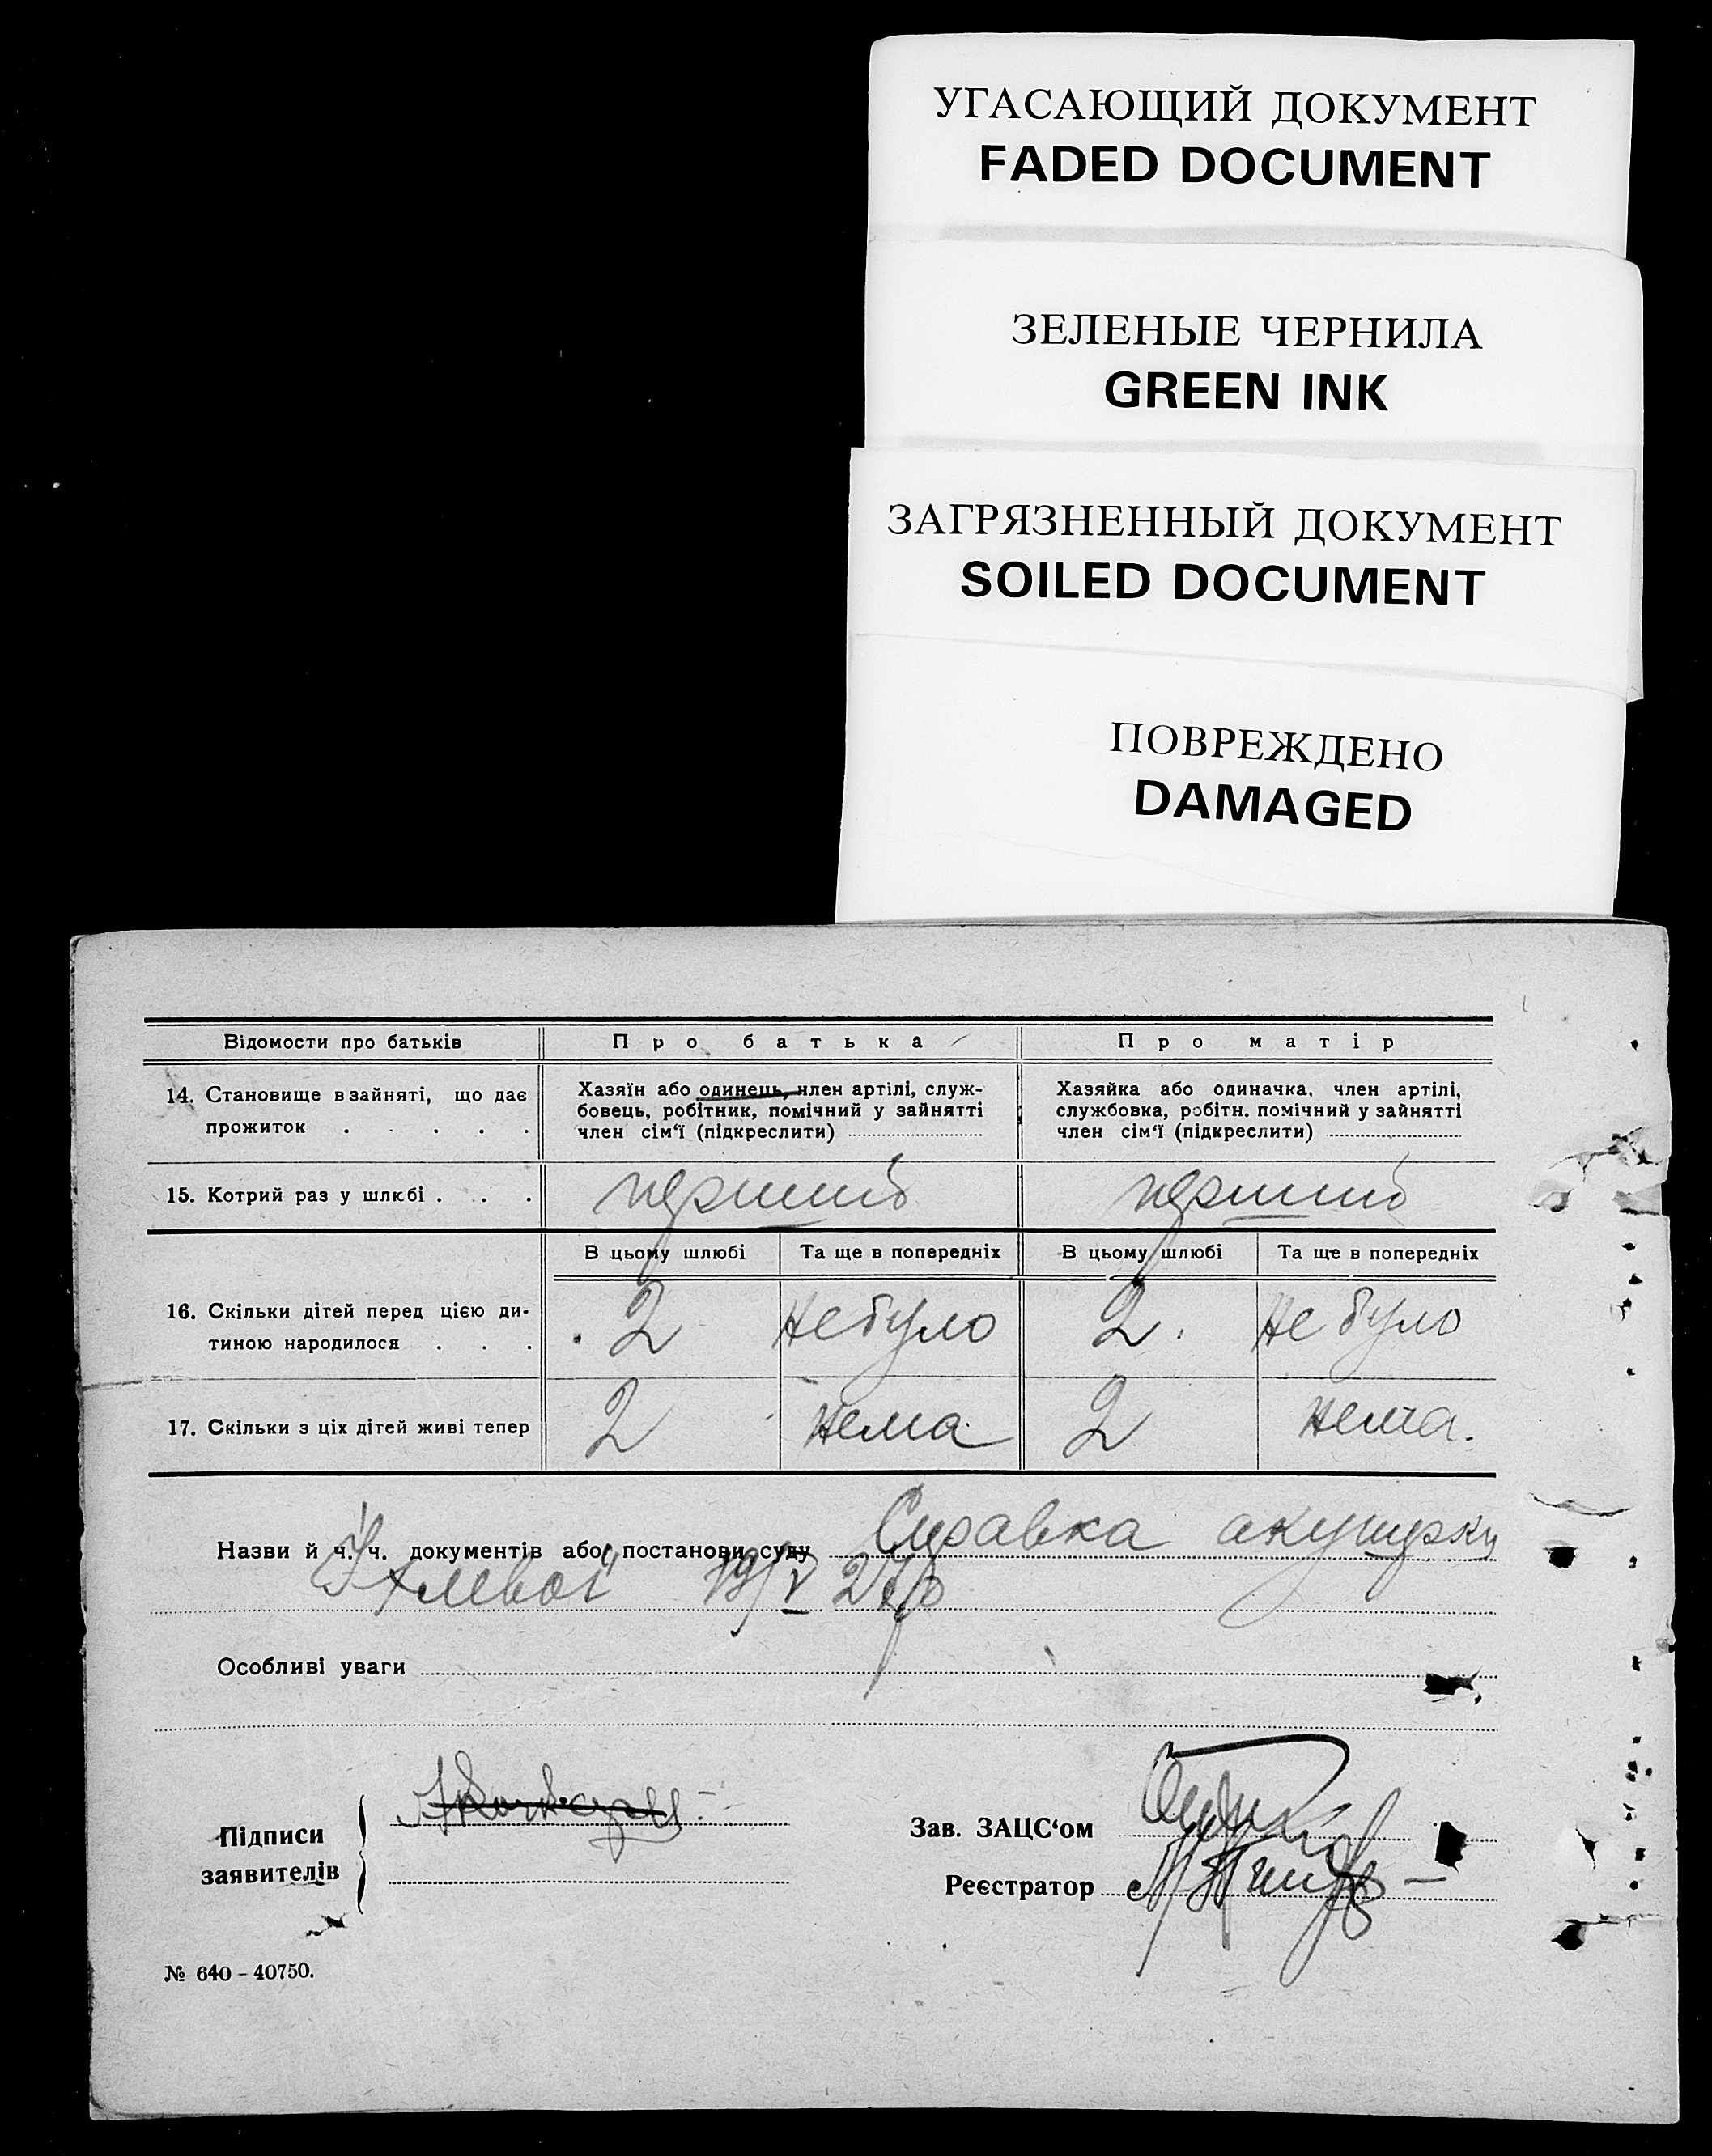 УГАСАЮЩИЙ ДОКУМЕНТ
FADED DOCUMENT
ЗЕЛЕНЫЕ ЧЕРНИЛА
GREEN INK
ЗАГРЯЗНЕННЫЙ ДОКУМЕНТ
SOILED DOCUMENT
ПОВРЕЖДЕНО
DAMAGED
Відомости про батьків
Про батька
Про матір
14. Становище в зайняті, що дає
прожиток . . . . .
Хазяїн або одинець, член артілі, служ-
бовець, робітник, помічний у зайнятті
член сім‘ї (підкреслити)
Хазяйка або одиначка, член артілі,
службовка, робітн. помічний у зайнятті
член сім‘ї (підкреслити)
15. Котрий раз у шлюбі . . .
перший
перший
В цьому шлюбі
Та ще в попередніх
В цьому шлюбі
Та ще в попередніх
16. Скільки дітей перед цією ди-
тиною народилося . . .
2
не було
2
не було
17. Скільки з ціх дітей живі тепер
2
нема
2
нема.
Назви й ч. ч. документів або постанови суду Справка акушерки
19/V
Особливі уваги
Підписи
заявителів
Зав. ЗАЦС‘ом
Реєстратор
№ 640 – 40750.